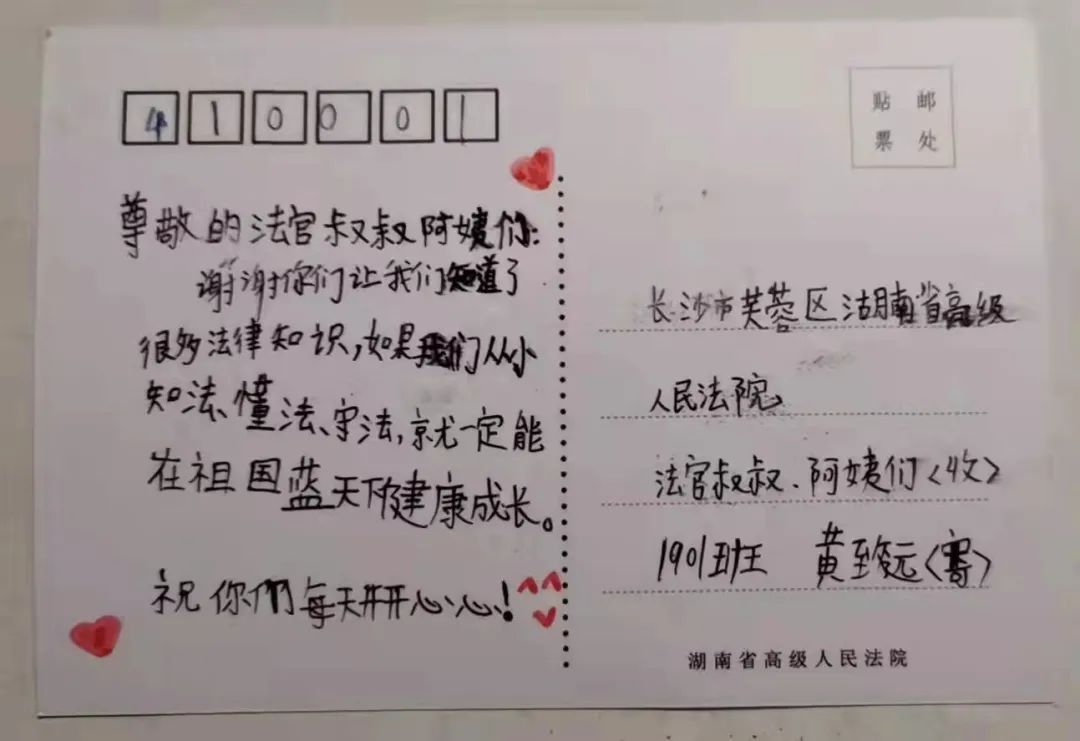 410001
贴邮
票处
尊敬的法官叔叔阿姨们:
谢谢你们让我们知道了
很多法律知识,如果我们从小
知法、懂法、守法,就一定能
在祖国蓝天下健康成长。
祝你们每天开开心心!
长沙市芙蓉区湖南省高级
人民法院
法官叔叔、阿姨们<收>
1901班 黄至远<寄>
湖南省高级人民法院